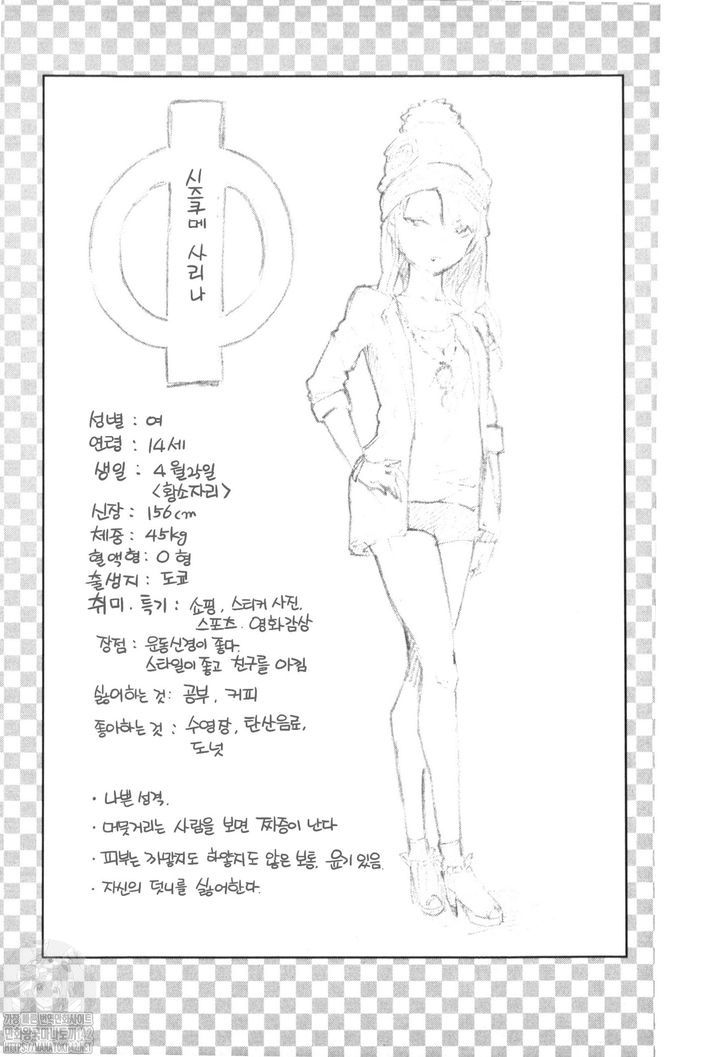 시즈쿠메 사리나
성별 : 여
연령 : 14세
생일 : 4월25일
<황소자리>
신장 : 156cm
체중 : 45kg
혈액형 : O 형
출생지 : 도쿄
취미. 특기 : 쇼핑, 스티커 사진,
스포츠, 영화감상
장점 : 운동신경이 좋다.
스타일이 좋고 친구를 아낌
싫어하는 것 : 공부, 커피
좋아하는 것 : 수영장, 탄산음료,
도넛
· 나쁜 성격.
· 머뭇거리는 사람을 보면 짜증이 난다
· 피부는 까맣지도 하얗지도 않은 보통. 윤기 있음
· 자신의 덧니를 싫어한다.
가장 빠른 번역만화사이트